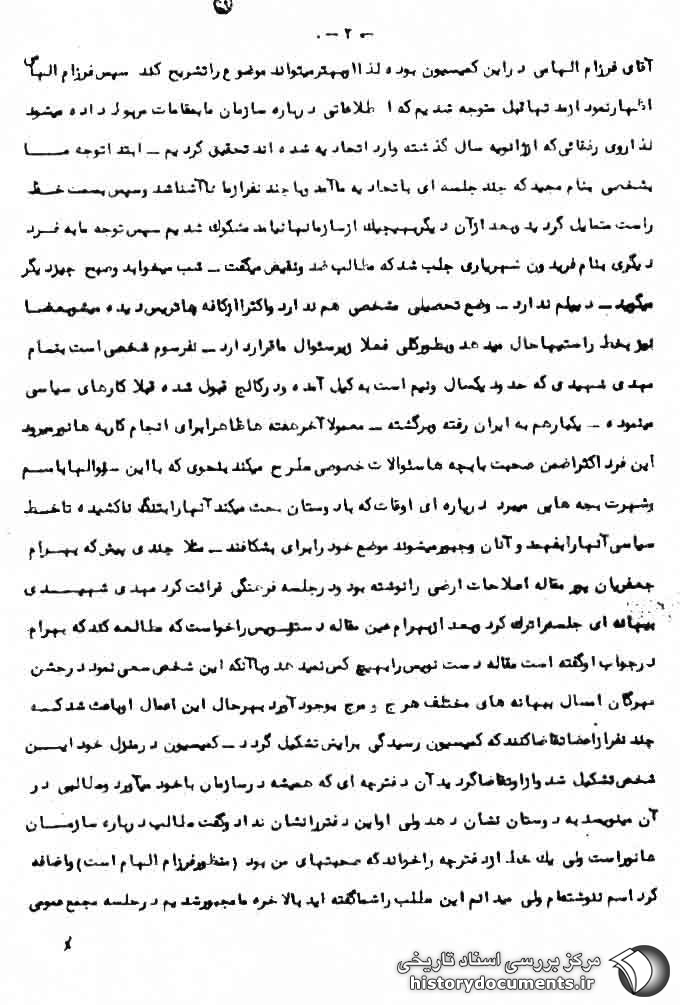 - ۲ - .
آقای فرزام الهامی در این کمیسیون بوده لذا ا و بهتر میتواند موضوع را تشریح کند سپس فرزام الهامی
اظهار نمود از مد تها قبل متوجه شدیم که ا طلاعاتی درباره سازمان ما بمقامات مربوطه داده میشود
لذا روی رفقائی که از ژانویه سال گذشته وارد اتحادیه شده اند تحقیق کردیم ــ ابتدا توجه مـــــا
بشخصی بنام مجید که چند جلسه ای با اتحادیه ما آمد و با چند نفر از ما آشنا شد و سپس بسمت خـــط
راست متمایل گردید و بعد از آن دیگر بهیچیک از سازمانها نیامد مشکوک شدیم سپس توجه ما به فـــرد
دیگری بنام فریدون شهریاری جلب شد که مطالب ضد و نقیض میگفت ــ شب میخوابد و صبح چیز دیگر
میگوید ــ دیپلم ندارد ــ وضع تحصیلی مشخصی هم ندارد و اکثرا از کافه ها تریس دیده میشود بعضـا
نیز بخط راستیها حال میدهد و بطور کلی فعلا زیر سئوال ما قرار دارد ــ نفر سوم شخصی است بنام
مهدی شهیدی که حدود یکسال ونیم است به کیل آمده و در کالج قبول شده قبلا کارهای سیاسی
مینموده ــ یکبار هم به ایران رفته و برگشته ــ معمولا آخر هفته ها ظاهرا برای انجام کار به هانور میرود
این فرد اکثرا ضمن صحبت با بچه ها سئوالات خصوصی مطرح میکند بنحوی که با این سئوالها با اسم
و شهرت بچه ها پی میبرد در پاره ای اوقات که با دوستان بحث میکند آنها را بتنگ نا کشیده تا خــط
سیاسی آنها را بفهمد و آنان مجبور میشوند موضع خود را برای بشکافند ــ مثلا چندی پیش که بهـــرام
جعفریان پور مقاله اصلاحات ارضی را نوشته بود و در جلسه فرهنگی قرائت کرد مهدی شهیــــدی
ببهانه ای جلسه را ترک کرد و بعد از بهرام عین مقاله دستنویس را خواست که مطالعه کند که بهرام
در جواب او گفته است مقاله دست نویس را بهیچ کس نمیدهد و با آنکه این شخص سعی نمود در جشن
مهرگان امسال ببهانه های مختلف هرج و مرج بوجود آورد بهرحال این اعمال او باعث شد کــــه
چند نفر از اعضا تقاضا کنند که کمیسیون رسیدگی برایش تشکیل گردد ــ کمیسیون در منزل خود ایـــن
شخص تشکیل شد و از او تقاضا گردید آن دفترچه ای که همیشه در سازمان با خود میآورد و مطالبی در
آن مینویسد به دوستان نشان دهد ولی او این دفتر را نشان نداد و گفت مطالب درباره سازمـــان
هانور است ولی یک خط از دفترچه را خواند که صحبتهای من بود (منظور فرزام الهام است) و اضافه
کرد اسم ننوشته ام ولی میدانم این مطلب را شما گفته اید بالاخره ما مجبور شدیم در جلسه مجمع عمومی
مرکز بررسی اسناد تاریخی
historydocuments.ir